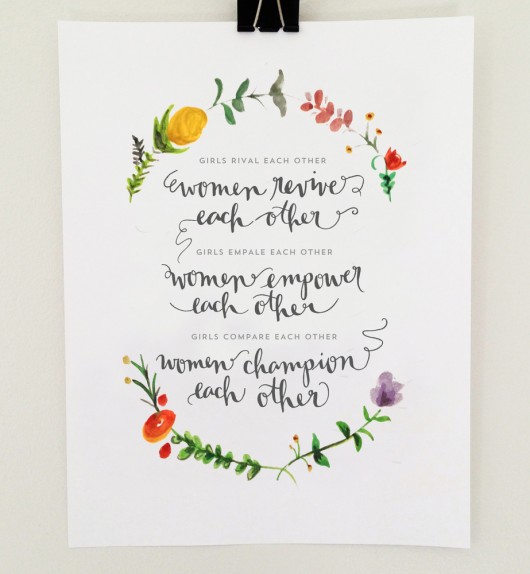 GIRLS RIVAL EACH OTHER
women revive
each other
GIRLS EMPALE EACH OTHER
women empower
each other
GIRLS COMPARE EACH OTHER
women champion
each other